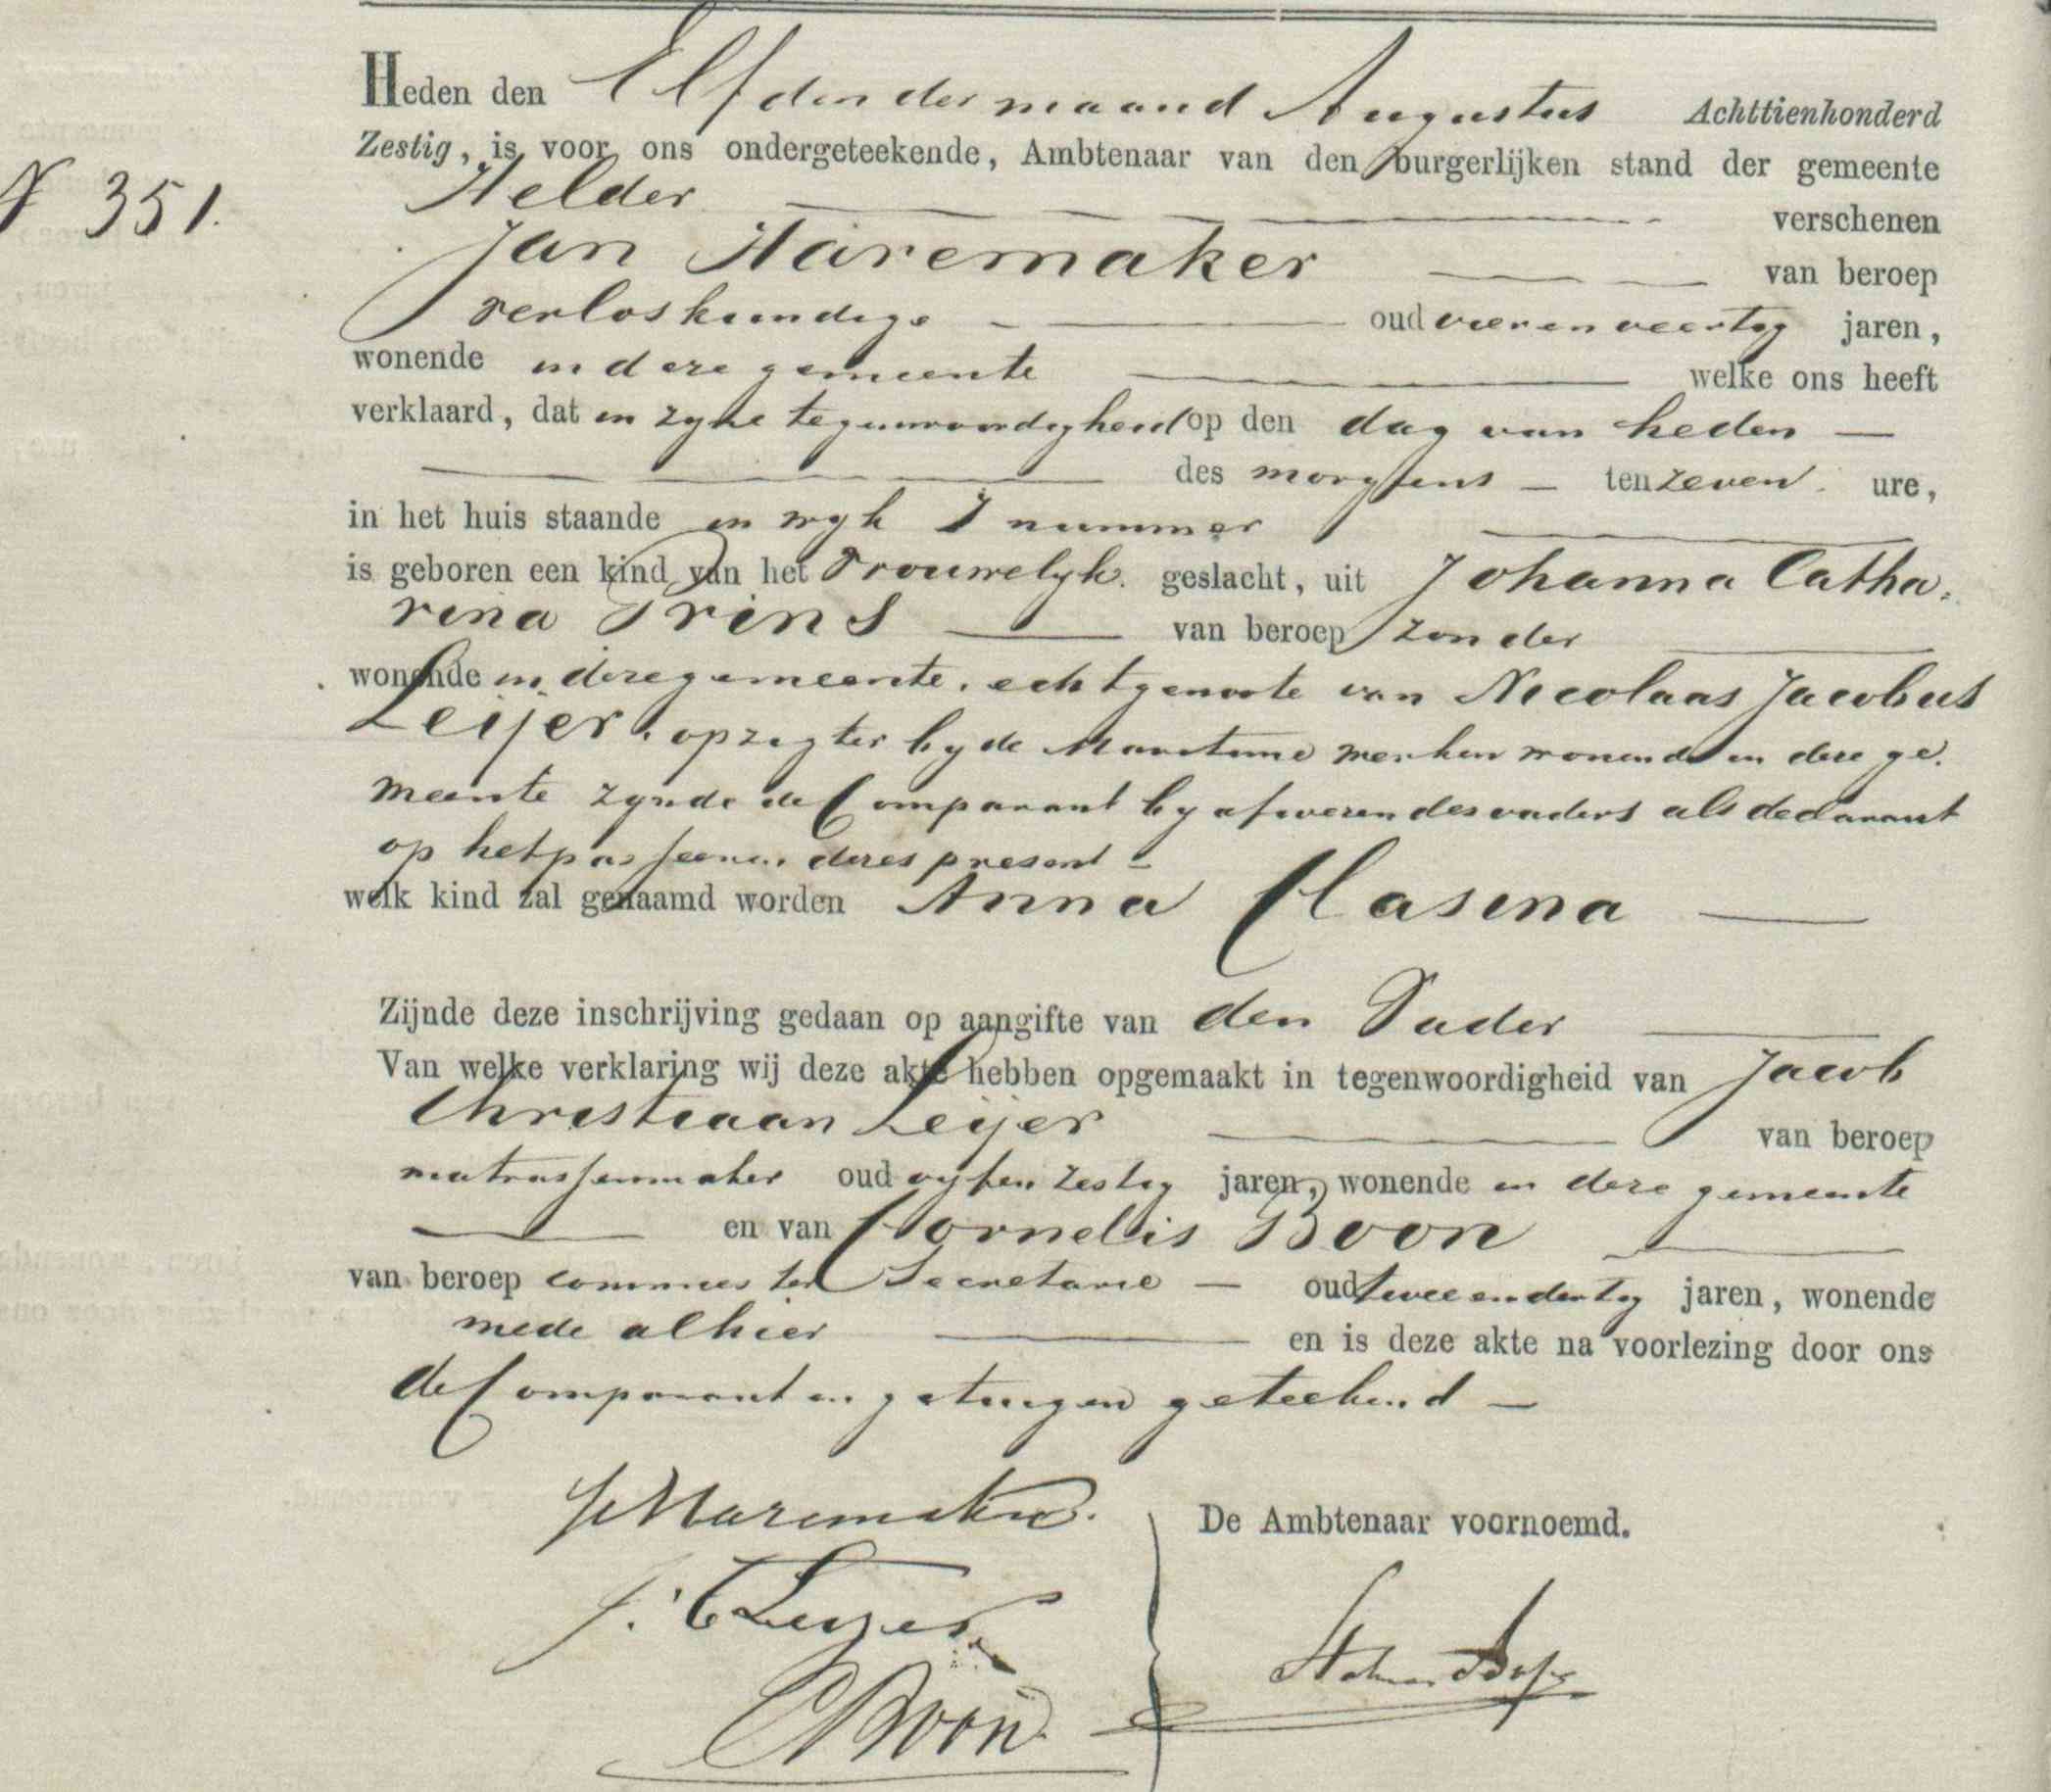 Heden den Elfden der maand Augustus Achttienhonderd
Zestig, is voor ons ondergeteekende, Ambtenaar van den burgerlijken stand der gemeente
Helder verschenen
N 351.
Jan Haremaker van beroep
verloskundige oud vier en veertig jaren,
wonende in deze gemeente welke ons heeft
verklaard, dat in zyne tegenwoordigheid op den dag van heden
des morgens ten zeven ure,
in het huis staande in wyk I nummer
is geboren een kind van het Vrouwelyk geslacht, uit Johanna Catha-
rina Prins van beroep zonder
wonende in deze gemeente, echtgenoote van Nicolaas Jacobus
Leijer, opzigter by de Maritime werken wonende in deze ge-
meente zynde de Comparant by afwezen des vaders als declarant
op het passeeren dezes present
welk kind zal genaamd worden Anna Clasina
Zijnde deze inschrijving gedaan op aangifte van den Vader
Van welke verklaring wij deze akte hebben opgemaakt in tegenwoordigheid van Jacob
Christiaan Leijer van beroep
matrassenmaker oud vyf en zestig jaren, wonende in deze gemeente
en van Cornelis Boon
van beroep commies ter Secretarie oud twee en dertig jaren, wonende
mede alhier en is deze akte na voorlezing door ons
de Comparant en getuigen geteekend
J Haremaker.
De Ambtenaar voornoemd.
J. C Leijer
C Boon